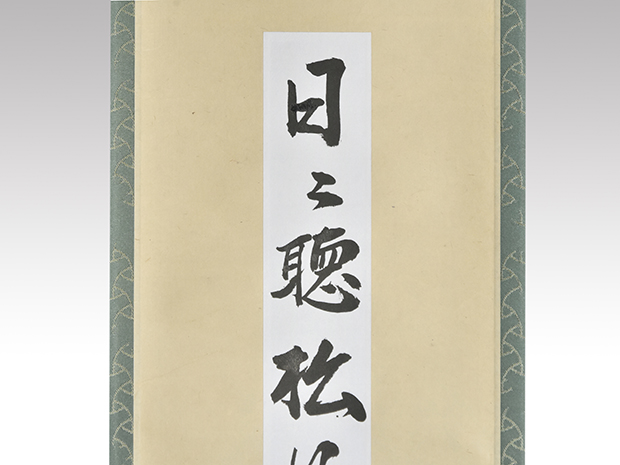 日々聴松